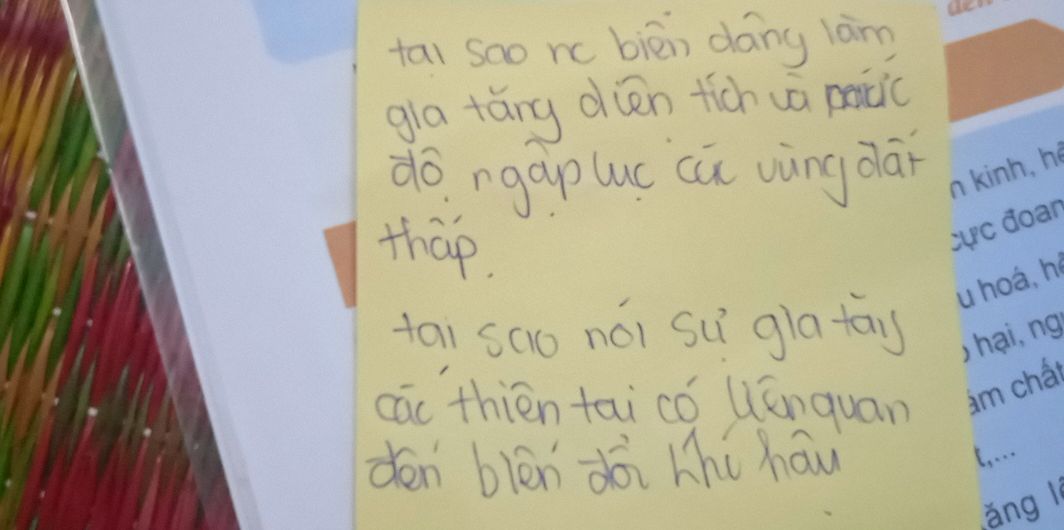 tại sao nc biển dâng làm
gia tăng diện tích và
độ ngập lục các vùng đất
thấp.
tại sao nói sự gia tăng
các thiên tai có liên quan
đến biến đổi khí hậu
n kinh, hề
cực đoan
u hoá, h
hại, ng
ám chất
t,...
ăng l